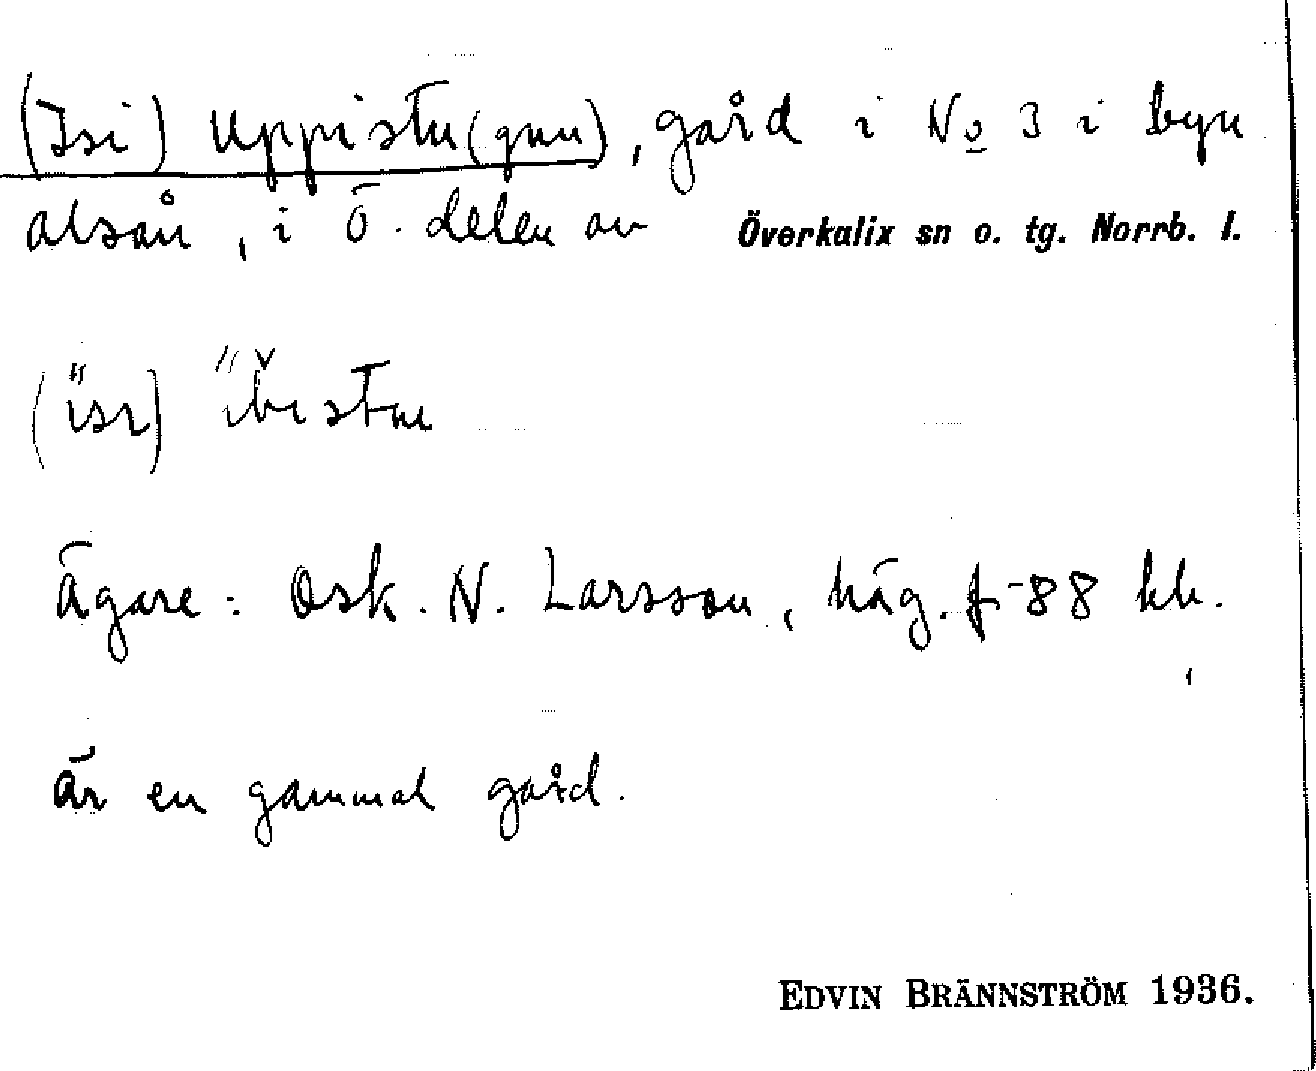 (Isi) Uppistu(gun), gård i No 3 i byn
alsån, i Ö. delen av Överkalix sn o. tg. Norrb. l.
Ägare: Osk. N. Larsson, häg. f-88 hh.
är en gammal gård.
EDVIN BRÄNNSTRÖM 1936.